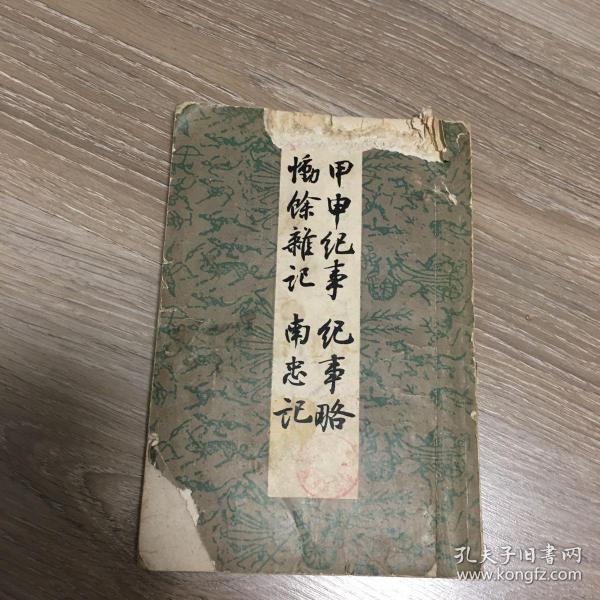 甲申纪事 纪事略
慟馀雜记 南忠记
孔夫子旧書网
www.kongfz.com